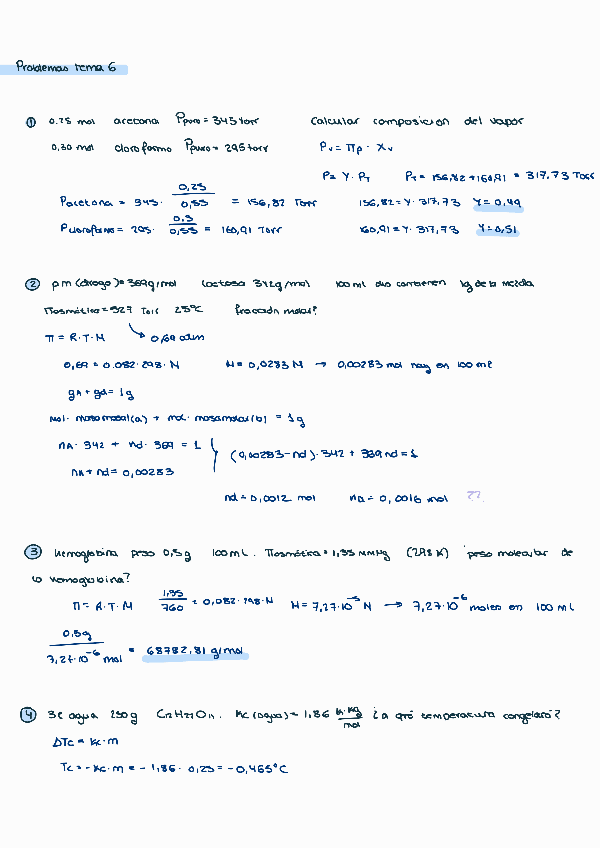 Problemas tema 6
① 0.25 mol acetona Ppuro = 345 torr Calcular composicion del vapor
0,30 mol cloroformo Ppuro = 295 torr Pv = Πp · Xv
P = Y · PT PT = 156,82 + 160,91 = 317,73 Torr
Pacetona = 345 · 0,25/0,55 = 156,82 Torr 156,82 = Y · 317,73 Y = 0,49
Pclorofomo = 295 · 0,3/0,55 = 160,91 Torr 160,91 = Y · 317,73 Y = 0,51
② p.m (droga) = 369 g/mol lactosa 342 g/mol 100 ml diso contienen 1g de la mezcla
Πosmótica = 527 Torr 25°C fracción molar?
Π = R · T · M 0,69 atm
0,69 = 0.082 · 298 · M M = 0,0283 M → 0,00283 mol hay en 100 ml
ga + gd = 1g
Mol · masa molar(a) + mol · masa molar(b) = 1g
nA · 342 + nd · 369 = 1
nA + nd = 0,00283
(0,00283 - nd) · 342 + 389 nd = 1
nd = 0,0012 mol na = 0,0016 mol ??
③ hemoglobina peso 0,5g 100 mL. Πosmótica = 1,35 mmHg (298 K) peso molecular de
la hemoglobina?
Π = R · T · M 1,35/760 = 0,082 · 298 · M M = 7,27·10⁻⁵ M → 7,27·10⁻⁶ moles en 100 mL
0,5g / 7,27·10⁻⁶ mol = 68782,81 g/mol
④ Se agua 250g C12H22O11. Kc (agua) = 1,86 K·Kg/mol ¿a qué temperatura congelará?
ΔTc = Kc · m
Tc = -Kc · m = -1,86 · 0,25 = -0,465°C